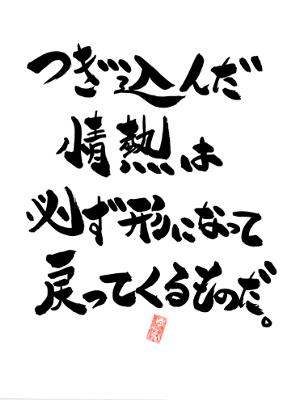 つぎ込んだ
情熱は
必ず形になって
戻ってくるものだ。